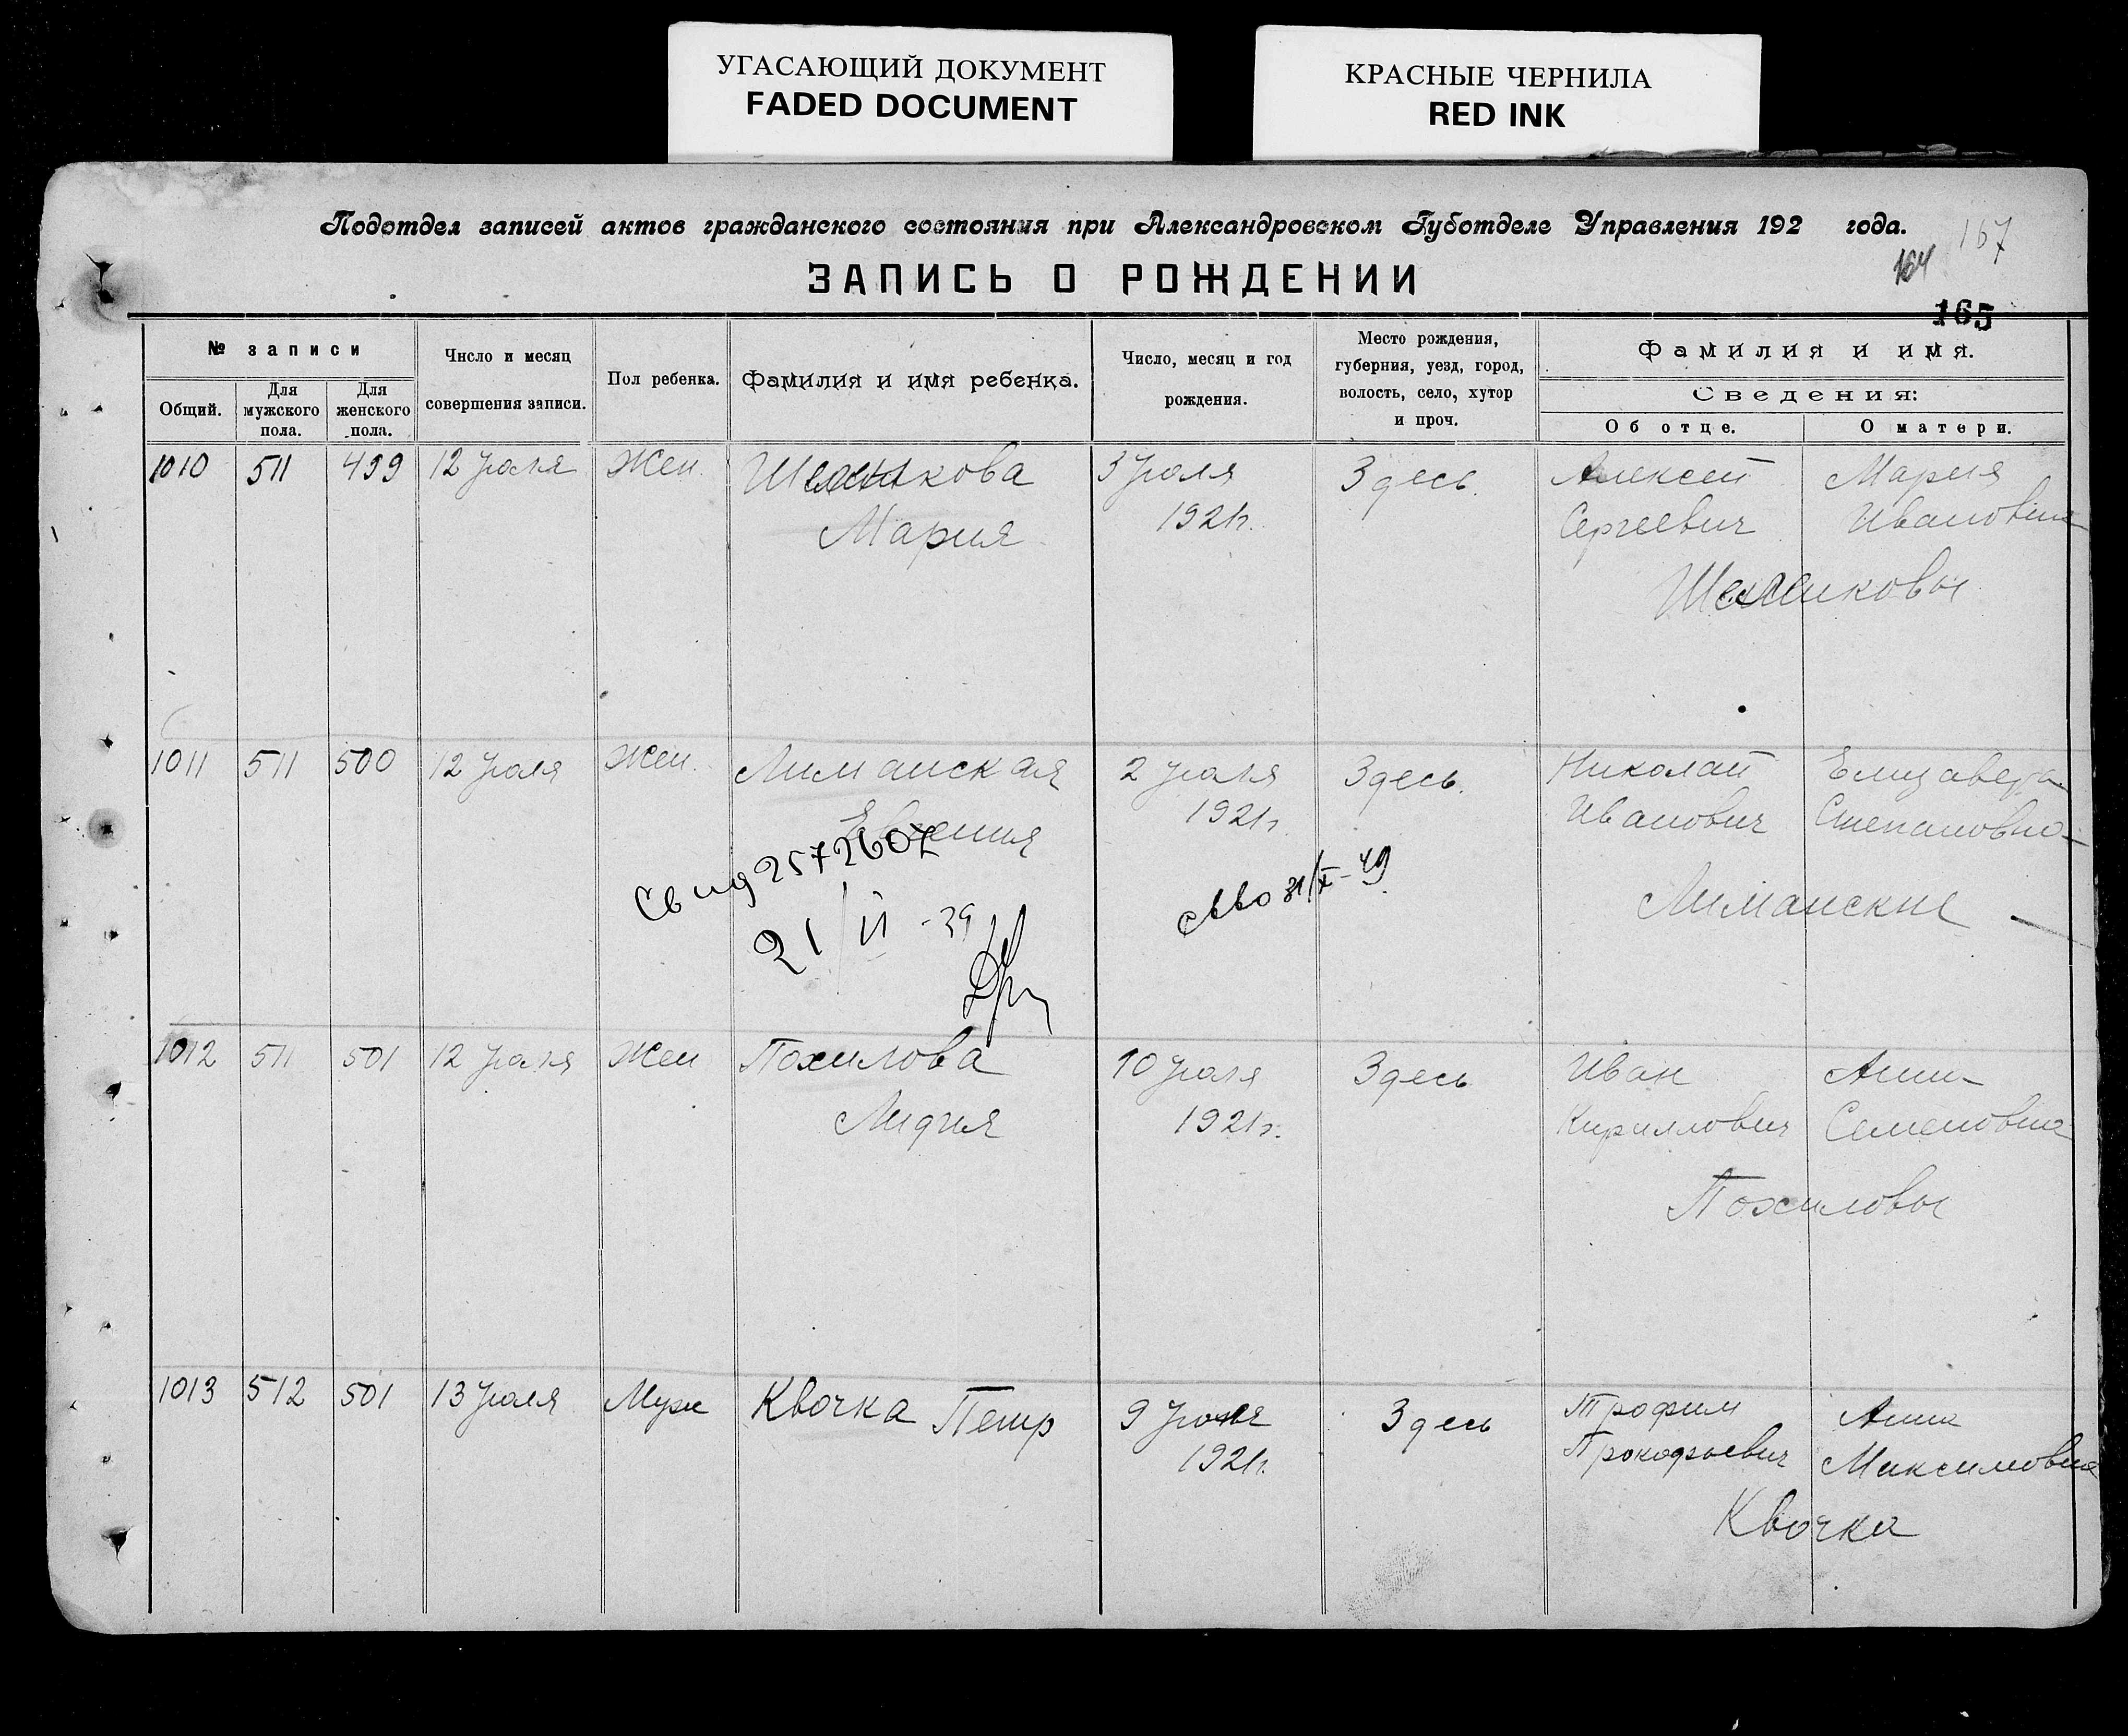 УГАСАЮЩИЙ ДОКУМЕНТ
FADED DOCUMENT
КРАСНЫЕ ЧЕРНИЛА
RED INK
Подотдел записей актов гражданского состояния при Александровском Губотделе Управления 192 года.
167
164
ЗАПИСЬ О РОЖДЕНИИ
165
№ записи
Общий.
Для мужского пола.
Для женского пола.
Число и месяц совершения записи.
Пол ребенка.
Фамилия и имя ребенка.
Число, месяц и год рождения.
Место рождения, губерния, уезд, город, волость, село, хутор и проч.
Фамилия и имя.
Сведения:
Об отце.
О матери.
1010 511 499 12 Июля Жен. 3 Июля Здесь. Алексей Мария
Мария 1921г. Сергеевич Ивановна
1011 511 500 12 Июля Жен. Лиманская 2 Июля Здесь. Николай Елизавета
Евгения 1921г. Иванович Степановна
Свид 2572607
21/VI -39
31/X-49
Лиманские
1012 511 501 12 Июля Жен Похилова 10 Июля Здесь Иван Анна
Лидия 1921г. Кириллович Семеновна
Похиловы
1013 512 501 13 Июля Муж Квочка Петр 9 Июля Здесь Трофим Анна
1921г. Прокофьевич Максимовна
Квочка